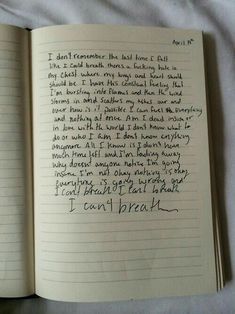 April 19th
I don't remember the last time I felt
like I could breath theres a fucking hole in
my chest where my lungs and heart should
should be. I have this constant feeling that
I'm bursting into flames and then the wind
storms in and scatters my ashes over and
over how is it possible I can feel everything
and nothing at once. Am I dead inside or
in love with the world I don't know what to
do or who I am I don't know anything
anymore All I know is I don't have
much time left and I'm fading away
why doesn't anyone notice I'm going
insane I'm not okay nothing is okay
everytime is going wrong and
I can't breath I can't breath
I can't breath